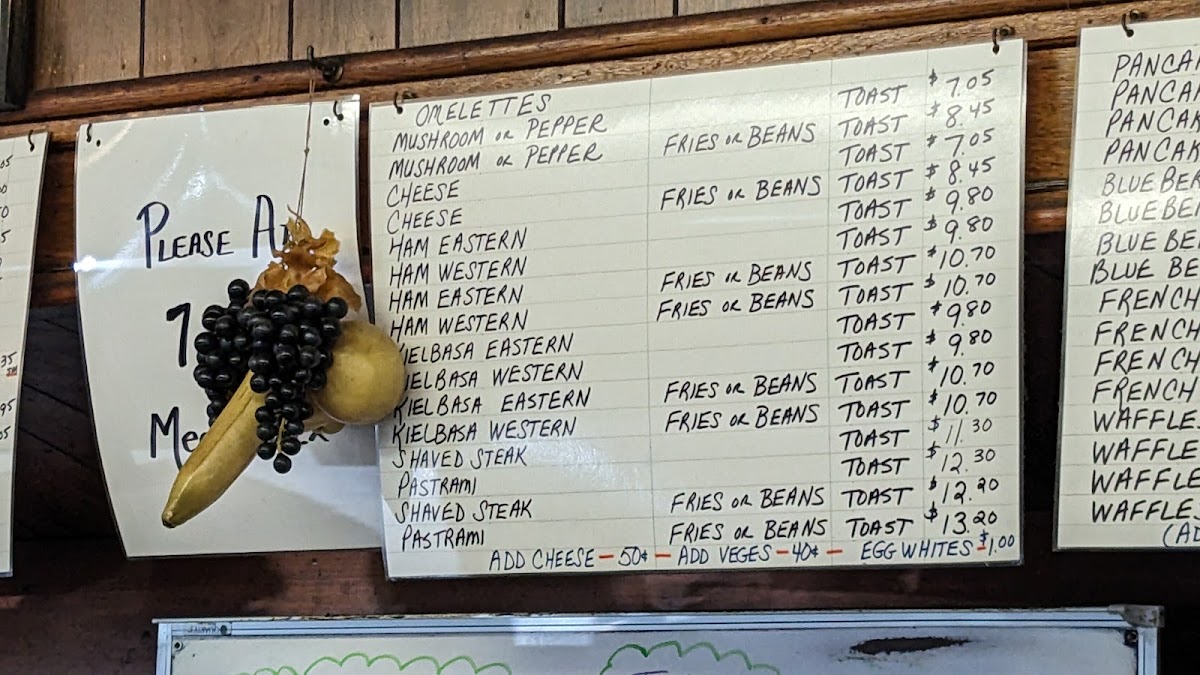 PLEASE
OMELETTES
MUSHROOM OR PEPPER TOAST $7.05
MUSHROOM OR PEPPER FRIES OR BEANS TOAST $8.45
CHEESE TOAST $7.05
CHEESE FRIES OR BEANS TOAST $8.45
HAM EASTERN TOAST $9.80
HAM WESTERN TOAST $9.80
HAM EASTERN FRIES OR BEANS TOAST $10.70
HAM WESTERN FRIES OR BEANS TOAST $10.70
KIELBASA EASTERN TOAST $9.80
KIELBASA WESTERN TOAST $9.80
KIELBASA EASTERN FRIES OR BEANS TOAST $10.70
KIELBASA WESTERN FRIES OR BEANS TOAST $10.70
SHAVED STEAK TOAST $11.30
PASTRAMI TOAST $12.30
SHAVED STEAK FRIES OR BEANS TOAST $12.20
PASTRAMI FRIES OR BEANS TOAST $13.20
ADD CHEESE - 50¢ - ADD VEGES - 40¢ - EGG WHITES - $1.00
PANCA
PANCA
PANCAK
PANCAK
BLUE BER
BLUE BE
BLUE BE
BLUE BE
FRENCH
FRENCH
FRENCH
FRENCH
WAFFLE
WAFFLE
WAFFLE
WAFFLE
(AD